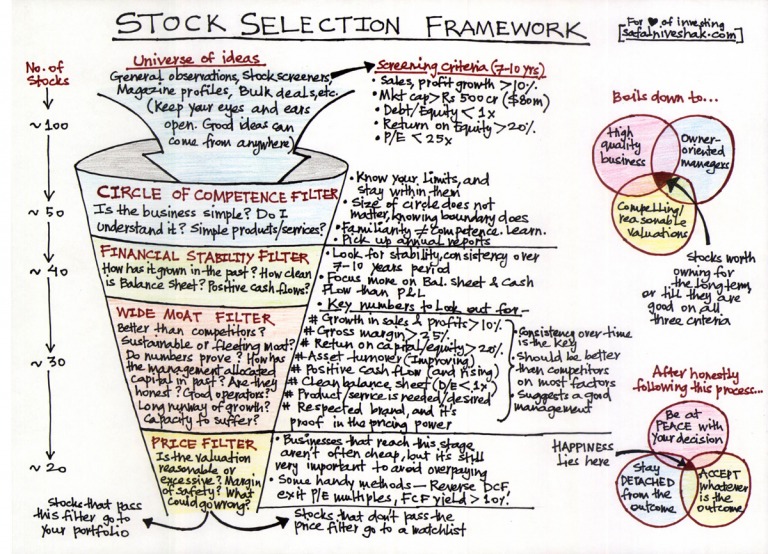 STOCK SELECTION FRAMEWORK
For ♥ of investing
[safalniveshak.com]
No. of
Stocks
~100
~50
~40
~30
~20
Universe of ideas
General observations, Stock screeners,
Magazine profiles, Bulk deals, etc.
(Keep your eyes and ears
open. Good ideas can
come from anywhere)
Screening Criteria (7-10 yrs)
• Sales, profit growth >10%.
• Mkt cap > Rs 500 cr ($80m)
• Debt/Equity < 1x
• Return on Equity >20%.
• P/E < 25x
CIRCLE OF COMPETENCE FILTER
Is the business simple? Do I
understand it? Simple products/services?
• Know your limits, and
stay within them
• Size of circle does not
matter, knowing boundary does
• Familiarity ≠ Competence. Learn.
• Pick up annual reports
FINANCIAL STABILITY FILTER
How has it grown in the past? How clean
is Balance Sheet? Positive cash flows?
• Look for stability, consistency over
7-10 years period
• Focus more on Bal. Sheet & Cash
Flow than P&L
WIDE MOAT FILTER
Better than competitors?
Sustainable or fleeting moat?
Do numbers prove? How has
the management allocated
capital in past? Are they
honest? Good operators?
Long runway of growth?
Capacity to suffer?
• Key numbers to look out for-
# Growth in sales & profits >10%
# Gross margin > 25%.
# Return on capital/equity >20%.
# Asset turnover (Improving)
# Positive cash flow (and rising)
# Clean balance sheet (D/E < 1x)
# Product/service is needed/desired
# Respected brand, and it's
proof in the pricing power
• Consistency over time
is the key
• Should be better
than competitors
on most factors
• Suggests a good
management
PRICE FILTER
Is the valuation
reasonable or
excessive? Margin
of safety? What
could go wrong?
• Businesses that reach this stage
aren't often cheap, but it's still
very important to avoid overpaying
• Some handy methods — Reverse DCF,
exit P/E multiples, FCF yield > 10%.
Stocks that pass
this filter go to
your portfolio
Stocks that don't pass the
price filter go to a watchlist
Boils down to...
High
quality
business
Owner-
oriented
managers
Compelling/
reasonable
valuations
Stocks worth
owning for
the long term,
or till they are
good on all
three criteria
After honestly
following this process...
Be at
PEACE with
your decision
HAPPINESS
lies here
Stay
DETACHED
from the
outcome
ACCEPT
whatever
is the
outcome